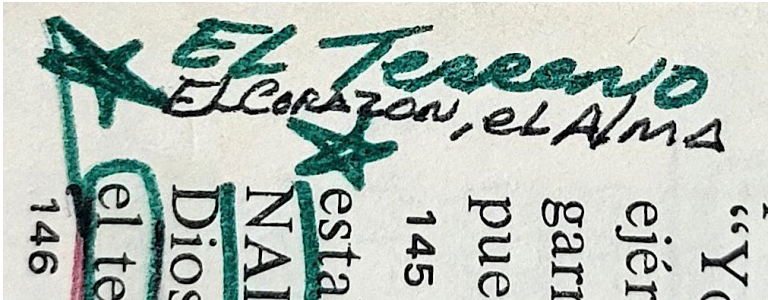 EL Terreno
EL CORAZON, eL AlMA
“Yo
ejér
garr
pue
145
esta
NAI
Dios
el te
146